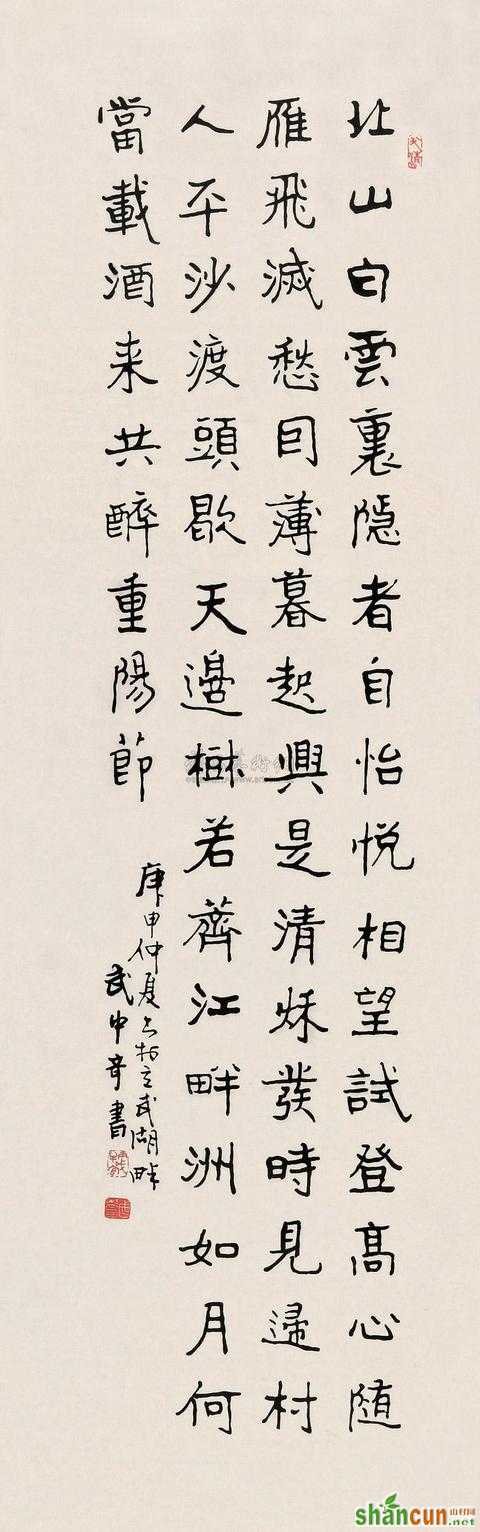 北山白雲裏隱者自怡悅相望試登高心随
雁飛滅愁因薄暮起興是清秋發時見歸村
人平沙渡頭歇天邊樹若薺江畔洲如月何
當載酒来共醉重陽節
庚申仲夏書於玄武湖畔
武中奇書
shancun
山村网
.net